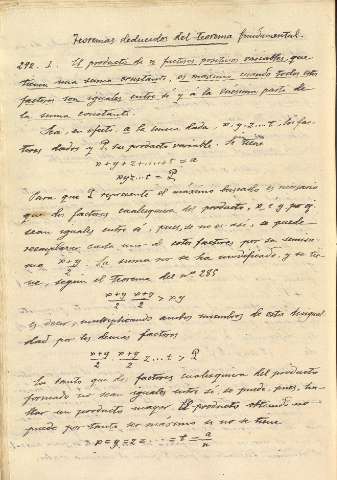 Teoremas deducidos del teorema fundamental.
292. I. El producto de n factores positivos variables, que
tienen una suma constante, es máximo cuando todos estos
factores son iguales entre sí y á la enesima parte de
la suma constante.
Sea, en efecto, a la suma dada, x, y, z...t, los fac-
tores dados y P, su producto variable. Se tiene
x+y+z+....+t = a
xyz...t = P
Para que P represente el máximo buscado es necesario
que dos factores cualesquiera del producto, x é y
sean iguales entre sí, pues, si no es así, se puede
reemplazar cada uno de estos factores por su semisu-
ma x+y/2. La suma no se ha modificado, y se tie-
ne, según el teorema del nº 285
x+y/2 x+y/2 > xy
es decir, multiplicando ambos miembros de esta desigual
dad por los demas factores
x+y/2 x+y/2 z...t > P
En tanto que dos factores cualesquiera del producto
formado no sean iguales entre sí, se puede, pues, ha-
llar un producto mayor. El producto obtenido no
puede por tanto ser máximo si no se tiene
x=y=z=....=t= a/n